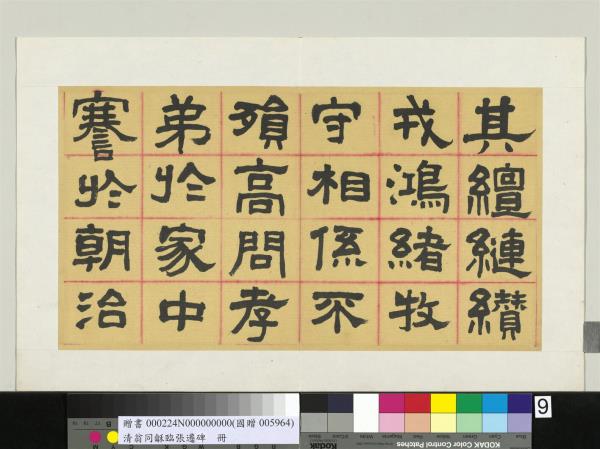 其繵縺纘
戎鴻緒牧
守相係不
殞高問孝
弟於家中
謇於朝治
贈書 000224N000000000(國贈 005964)
清翁同龢臨張遷碑 冊
KODAK Color Control Patches
Kodak
9